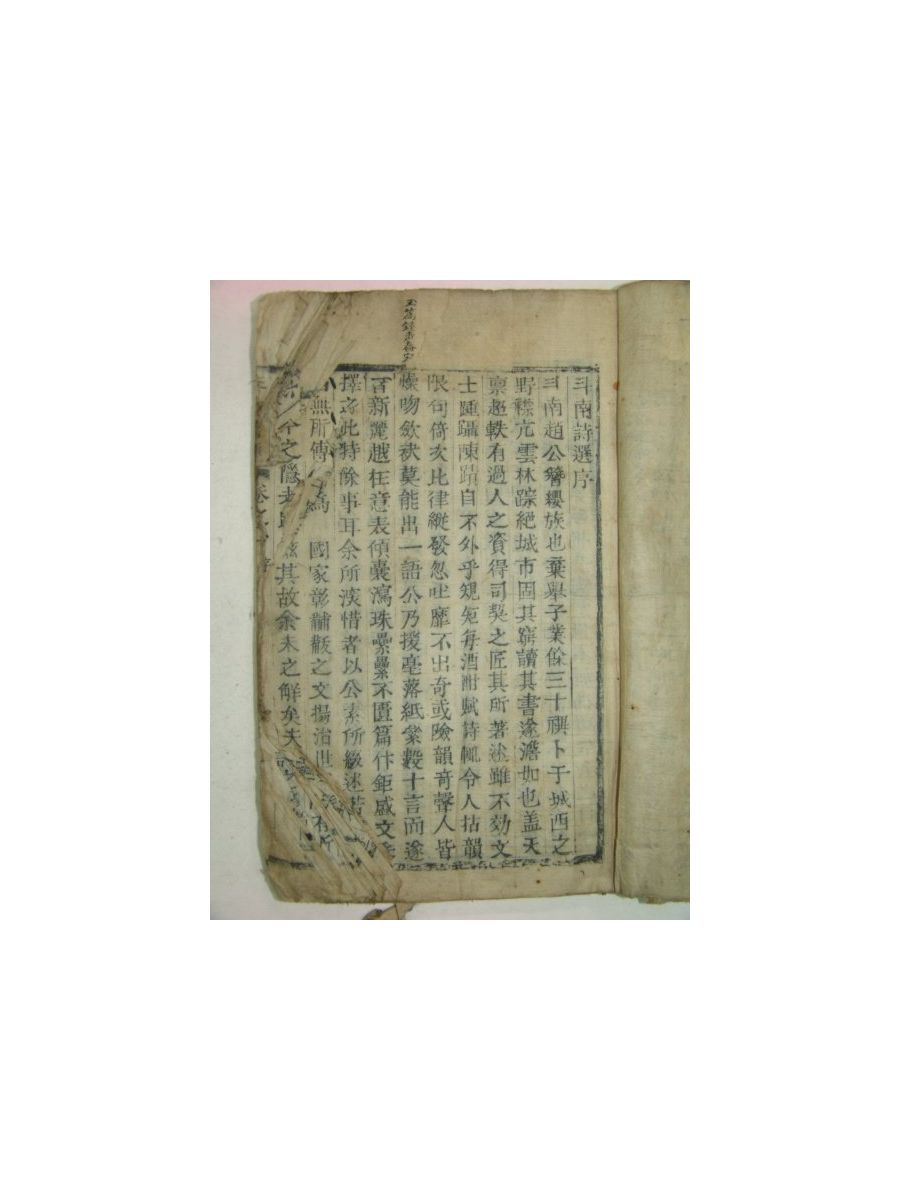 斗南詩選序
斗南趙公簪纓族也棄擧子業餘三十禩卜于城西之
野襟亢雲林蹤絶城市固其窮讀其書遂澹如也盖天
禀趡軼有過人之資得司契之匠其所著述雖不効文
士踵躡陳蹟自不外乎規矩每酒酣賦詩輒令人拈韻
限句倚次比律縱發忽吐靡不出奇或險韻奇聲人皆
燥吻斂袂莫能出一語公乃援毫落紙絫數十言而遂
百新麗越在意表傾囊瀉珠纍纍不匱篇什鉅盛文
擇之此特餘事耳余所深惜者以公素所綴述
無所傳 爲 國家彰黼黻之文揚治世
今之隱 其故余未之解矣夫